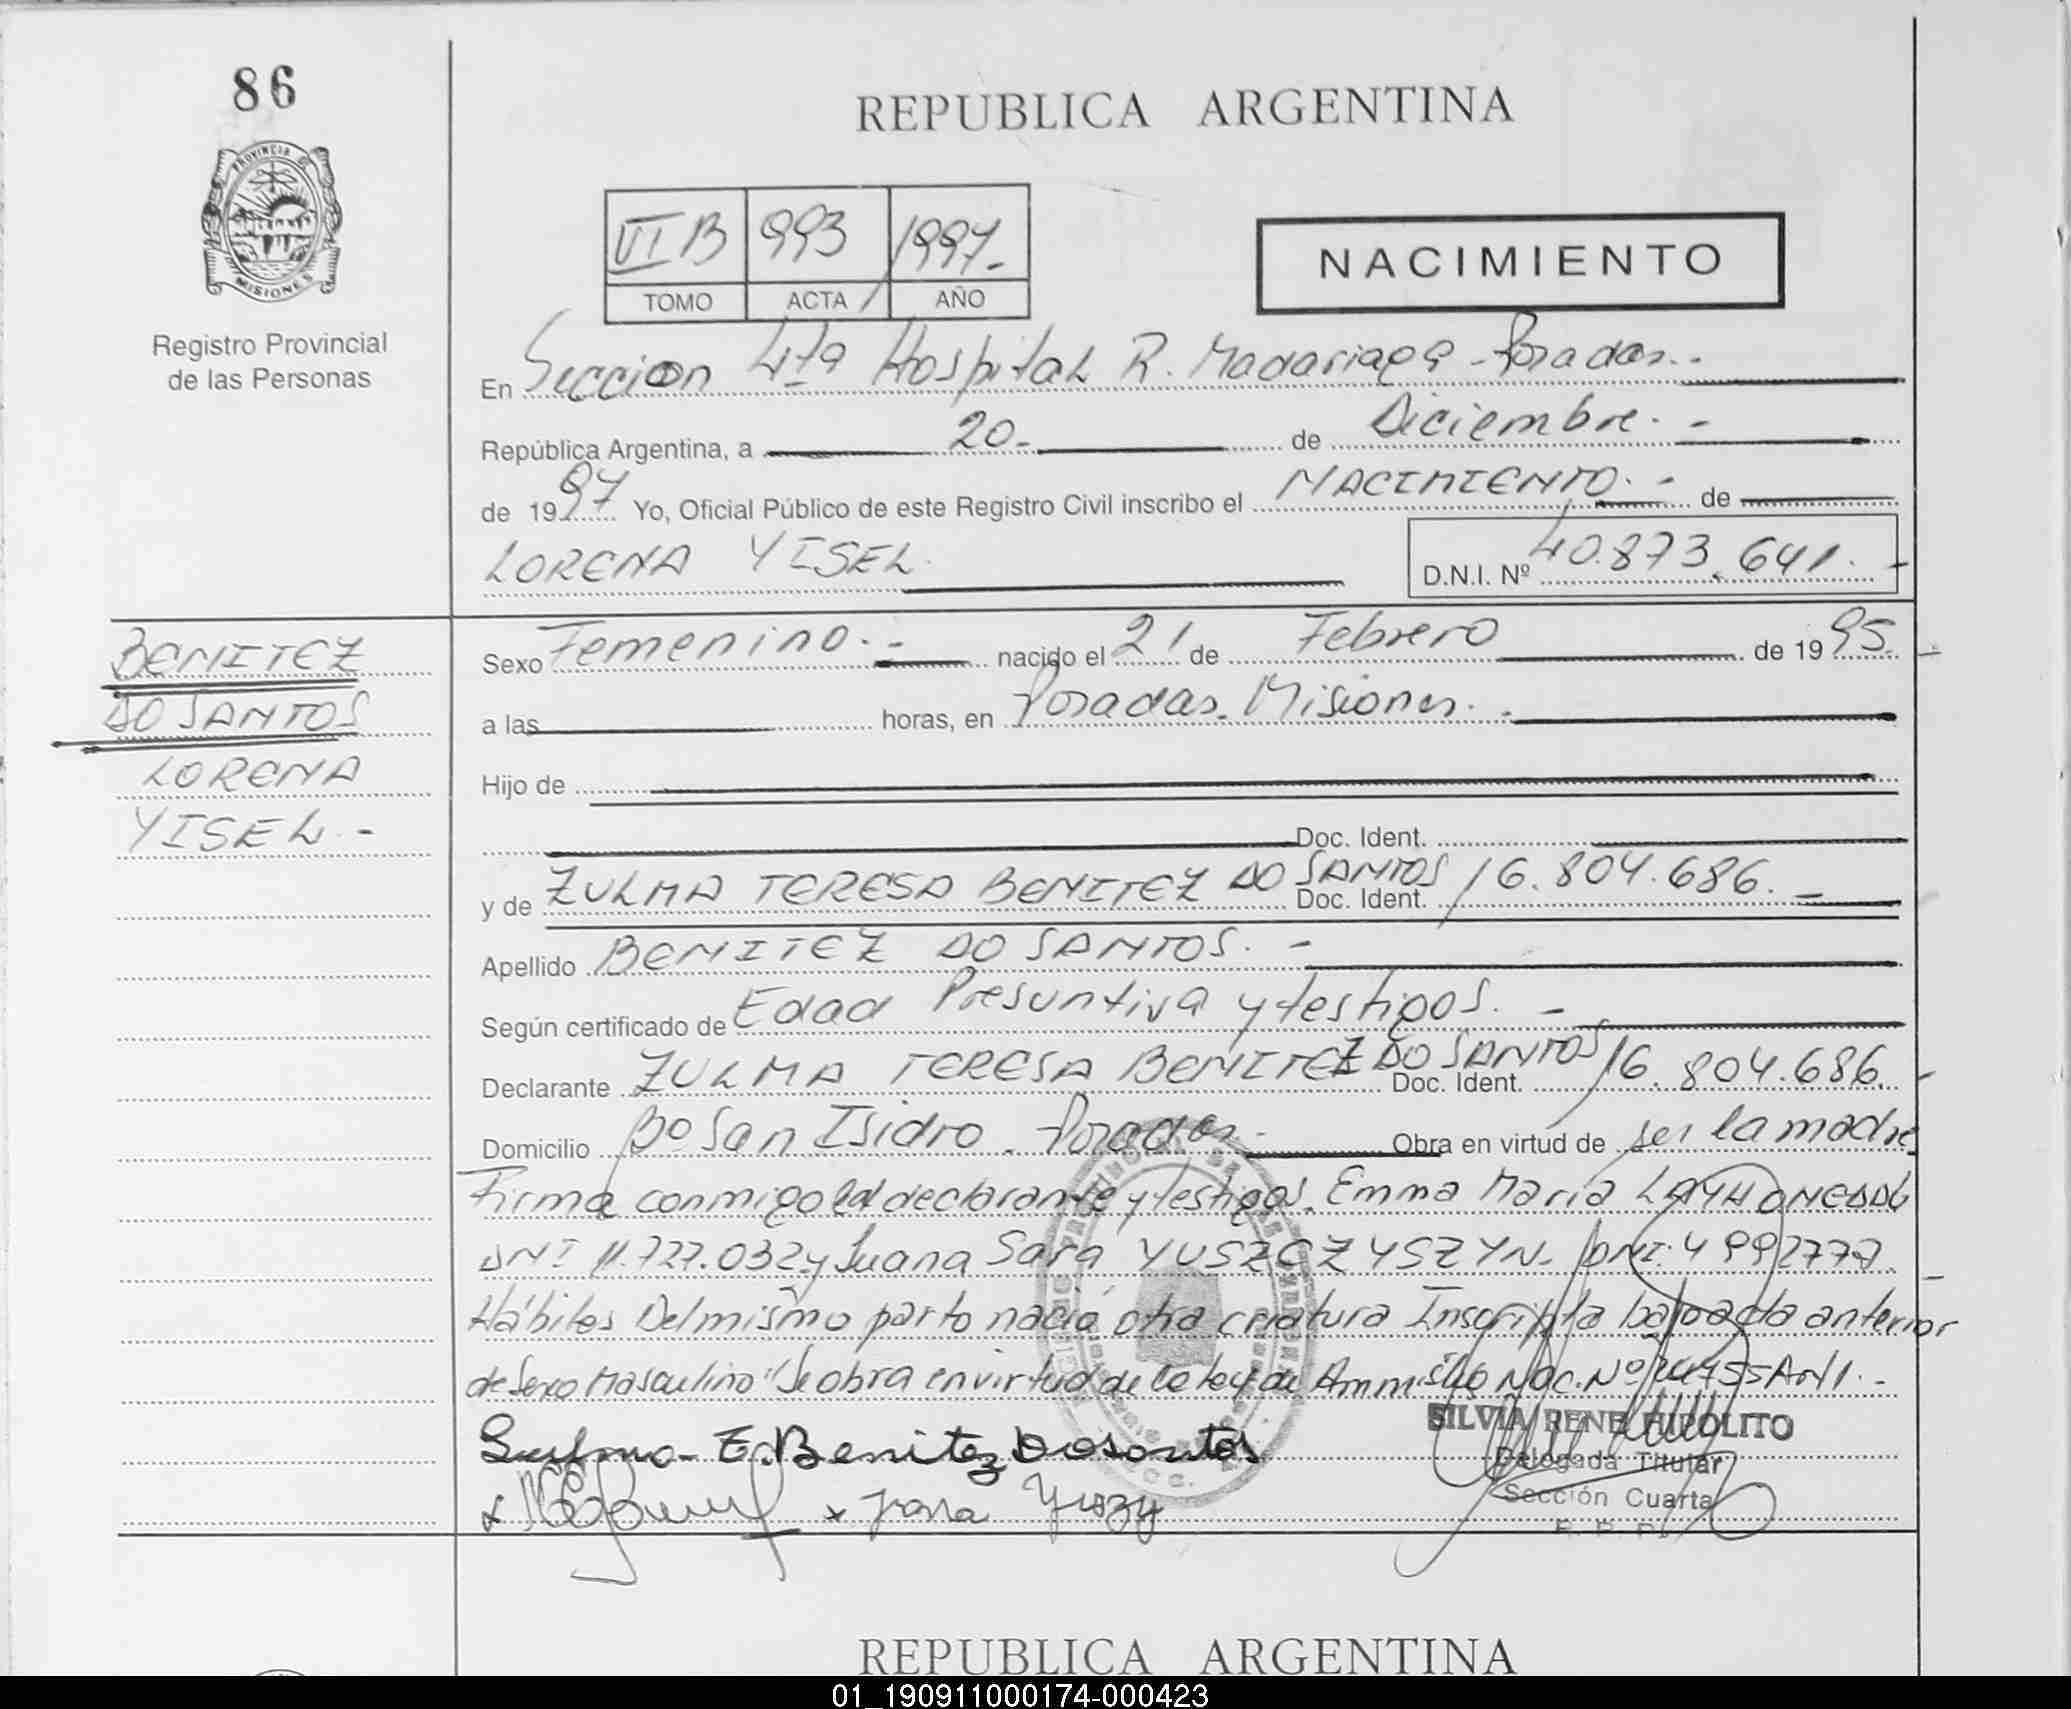 86
PROVINCIA DE
MISIONES
Registro Provincial
de las Personas
REPUBLICA ARGENTINA
VI B 993 1997.-
TOMO ACTA AÑO
NACIMIENTO
En Sección 4ta Hospital R. Madariaga - Posadas.-
República Argentina, a 20- de Diciembre.-
de 1997 Yo, Oficial Público de este Registro Civil inscribo el NACIMIENTO.- de
LORENA YISEL. D.N.I. Nº 40.873.641.-
BENITEZ
DO SANTOS
LORENA
YISEL.-
Sexo Femenino.- nacido el 21 de Febrero de 1995.
a las horas, en Posadas. Misiones.-
Hijo de
Doc. Ident.
y de ZULMA TERESA BENITEZ DO SANTOS Doc. Ident. 16.804.686.-
Apellido BENITEZ DO SANTOS.-
Según certificado de Edad Presuntiva y testigos.-
Declarante ZULMA TERESA BENITEZ DO SANTOS Doc. Ident. 16.804.686.-
Domicilio Bo San Isidro. Posadas.- Obra en virtud de ser la madre
Firma conmigo la declarante y testigos. Emma María
DNI 11.727.032 y Juana Sara YUSZCZYSZYN. DNI: 4992777
Hábiles Del mismo parto nació otra criatura Inscripta bajo acta anterior
de Sexo Masculino Se obra en virtud de la ley de Nac. Nº
Benitez Dosantos
x x
SILVIA RENE HIPOLITO
Delegada Titular
Sección Cuarta
R. P. P.
REPUBLICA ARGENTINA
01_190911000174-000423